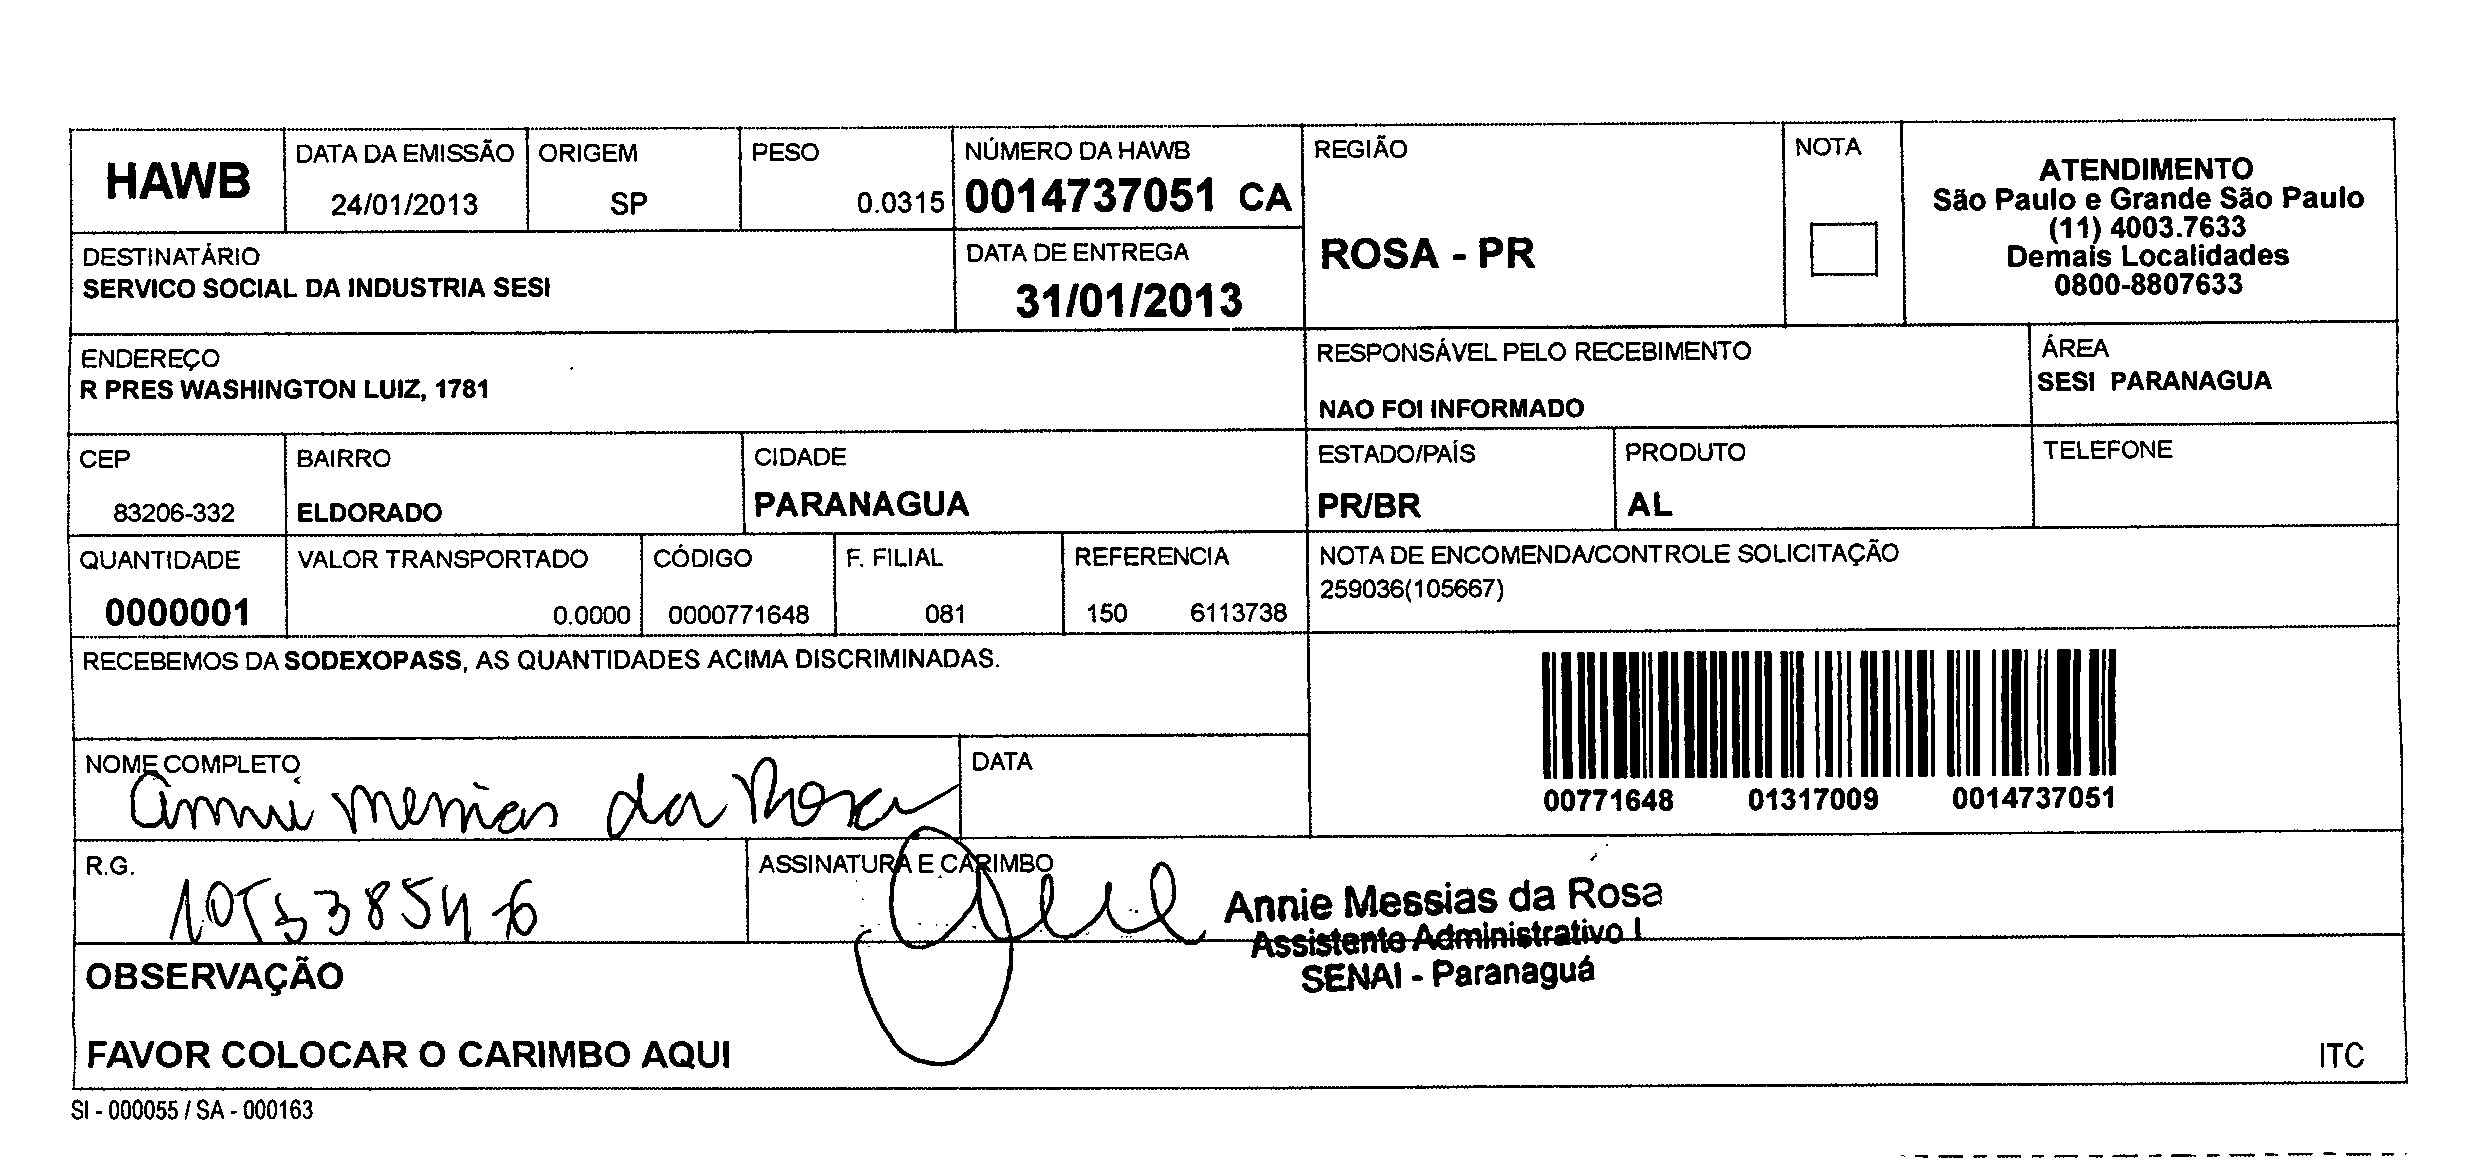 HAWB
DATA DA EMISSÃO
24/01/2013
ORIGEM
SP
PESO
0.0315
NÚMERO DA HAWB
0014737051 CA
REGIÃO
ROSA - PR
NOTA
ATENDIMENTO
São Paulo e Grande São Paulo
(11) 4003.7633
Demais Localidades
0800-8807633
DESTINATÁRIO
SERVICO SOCIAL DA INDUSTRIA SESI
DATA DE ENTREGA
31/01/2013
ENDEREÇO
R PRES WASHINGTON LUIZ, 1781
RESPONSÁVEL PELO RECEBIMENTO
NAO FOI INFORMADO
ÁREA
SESI PARANAGUA
CEP
83206-332
BAIRRO
ELDORADO
CIDADE
PARANAGUA
ESTADO/PAÍS
PR/BR
PRODUTO
AL
TELEFONE
QUANTIDADE
0000001
VALOR TRANSPORTADO
0.0000
CÓDIGO
0000771648
F. FILIAL
081
REFERENCIA
150 6113738
NOTA DE ENCOMENDA/CONTROLE SOLICITAÇÃO
259036(105667)
RECEBEMOS DA SODEXOPASS, AS QUANTIDADES ACIMA DISCRIMINADAS.
00771648 01317009 0014737051
NOME COMPLETO
Annie Messias da Rosa
DATA
R.G.
ASSINATURA E CARIMBO
Annie Messias da Rosa
Assistente Administrativo I
SENAI - Paranaguá
OBSERVAÇÃO
FAVOR COLOCAR O CARIMBO AQUI
ITC
SI - 000055 / SA - 000163